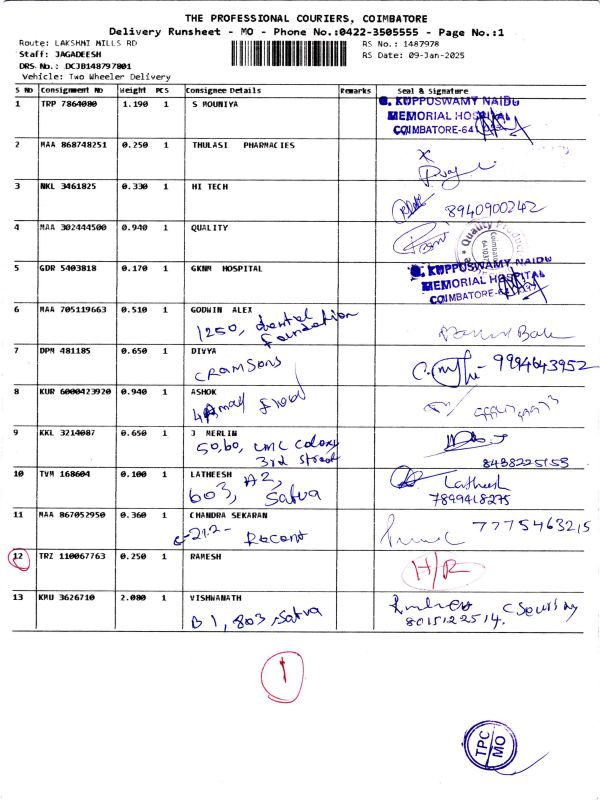 THE PROFESSIONAL COURIERS, COIMBATORE
Delivery Runsheet - MO - Phone No.:0422-3505555 - Page No.:1
Route: LAKSHMI MILLS RD
RS No.: 1487978
Staff: JAGADEESH
RS Date: 09-Jan-2025
DRS No.: DCJB148797801
Vehicle: Two Wheeler Delivery
S No Consignment No Weight PCS Consignee Details Remarks Seal & Signature
1 TRP 7864080 1.190 1 S MOUNIYA
KUPPUSWAMY NAIDU
MEMORIAL HOSPITAL
COIMBATORE-641
2 MAA 868748251 0.250 1 THULASI PHARMACIES
3 NKL 3461825 0.330 1 HI TECH
8940900242
4 MAA 302444500 0.940 1 QUALITY
Quality
Coimbatore
5 GDR 5403818 0.170 1 GKNM HOSPITAL
G. KUPPUSWAMY NAIDU
MEMORIAL HOSPITAL
COIMBATORE-641
6 MAA 705119663 0.510 1 GODWIN ALEX
1250, dental
Foundation
7 DPM 481185 0.650 1 DIVYA
CRAMSONS
9994643952
8 KUR 6000423920 0.940 1 ASHOK
floor
9 KKL 3214087 0.650 1 J MERLIN
50,60, LMC Colony
3rd street
8438225155
10 TVM 168604 0.100 1 LATHEESH
603, A2,
Satva
Latheesh
7899418275
11 MAA 867052950 0.360 1 CHANDRA SEKARAN
7775463215
12 TRZ 110067763 0.250 1 RAMESH
H/R
13 KMU 3626710 2.080 1 VISHWANATH
B1, 803, Satva
8015122514.
1
TPC
MO